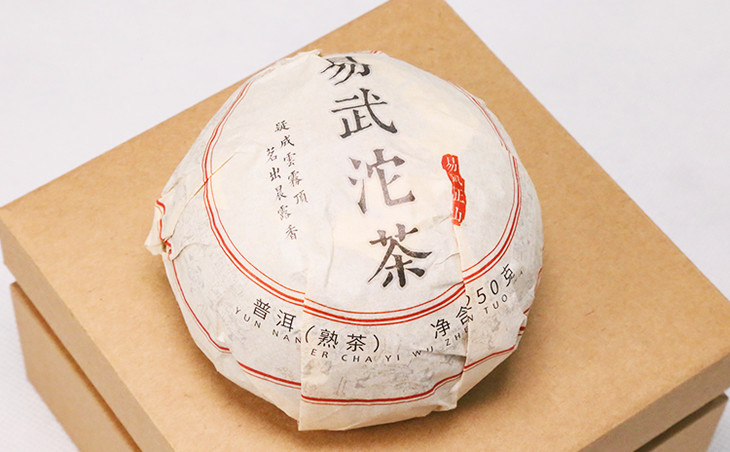 易武沱茶
凝成雲霧頂
茗出晨露香
易武正山
普洱(熟茶) 净含 50克
YUN NAN ER CHA YI WU ZHEN TUO